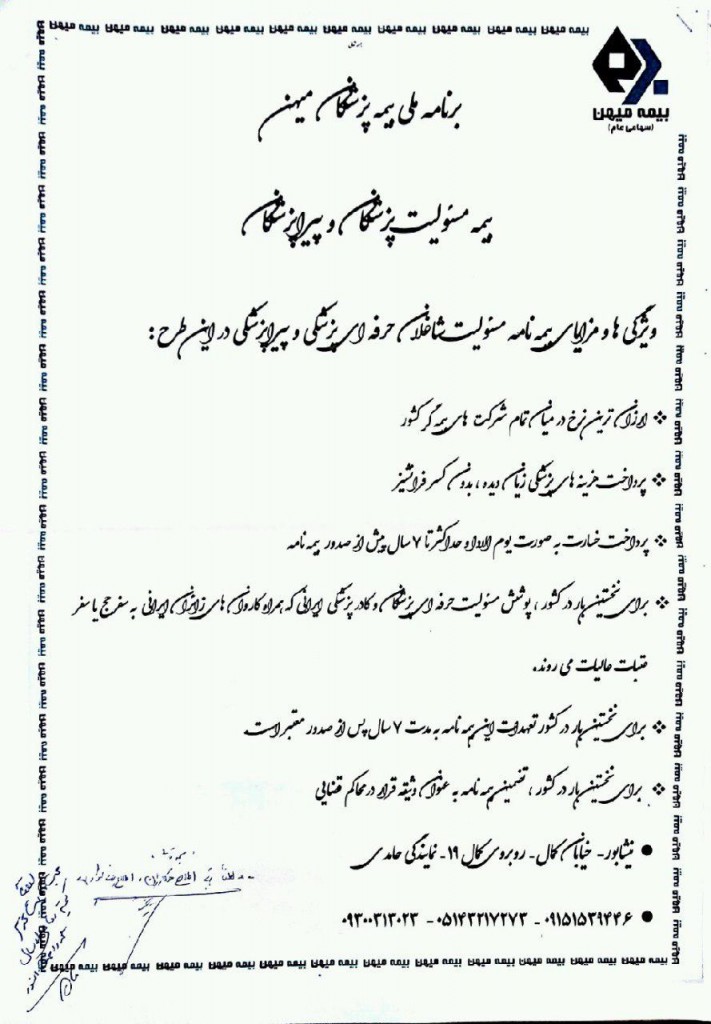 بیمه میهن
(سهامی عام)
برنامه ملی بیمه پزشکان میهن
بیمه مسئولیت پزشکان و پیراپزشکان
ویژگی ها و مزایای بیمه نامه مسئولیت شاغلان حرفه ای پزشکی و پیراپزشکی در این طرح :
❖ ارزان ترین نرخ در میان تمام شرکت های بیمه گر کشور
❖ پرداخت هزینه های پزشکی زیان دیده ، بدون کسر فرانشیز
❖ پرداخت خسارت به صورت یوم الاداء و حداکثر تا ۷ سال پیش از صدور بیمه نامه
❖ برای نخستین بار در کشور ، پوشش مسئولیت حرفه ای پزشکان و کادر پزشکی ایرانی که همراه کاروان های زائران ایرانی به سفر حج یا سفر
عتبات عالیات می روند.
❖ برای نخستین بار در کشور تعهدات این بیمه نامه به مدت ۷ سال پس از صدور معتبر است.
❖ برای نخستین بار در کشور ، تضمین بیمه نامه به عنوان وثیقه قرار در محاکم قضایی
● نیشابور - خیابان کمال - روبروی کمال ۱۹ - نمایندگی حامدی
● ۰۹۱۵۱۵۳۹۴۴۶ - ۰۵۱۴۳۲۱۷۲۷۳ - ۰۹۳۰۰۳۱۳۰۲۳